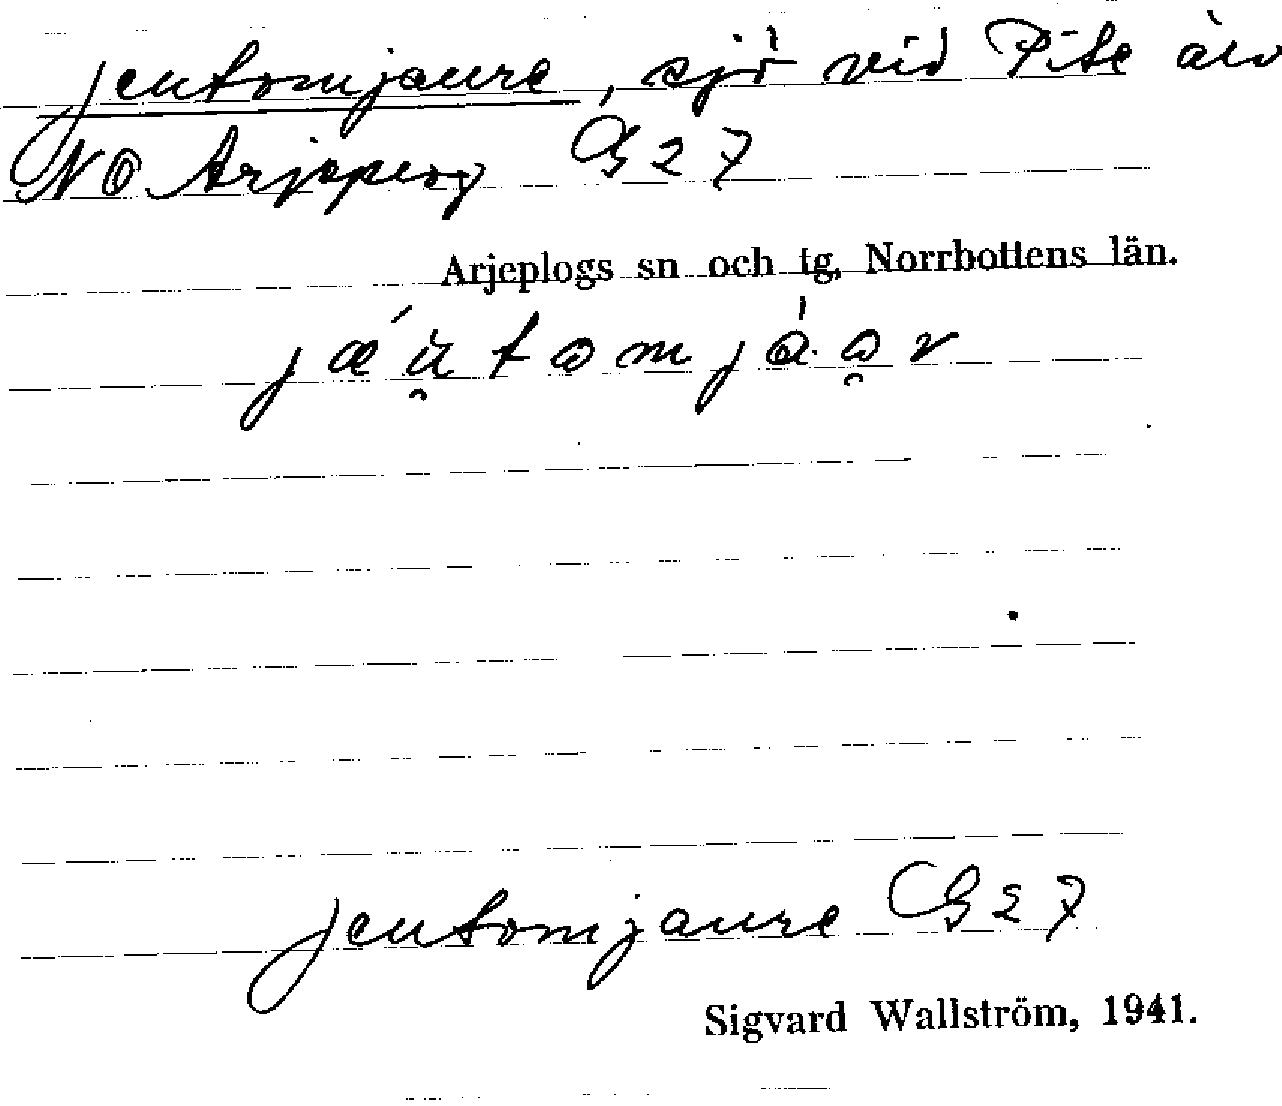 Jeutomjaure, sjö vid Pite älv
NO Arjeplog G27
Arjeplogs sn och tg, Norrbottens län.
Jeutomjaure G27
Sigvard Wallström, 1941.